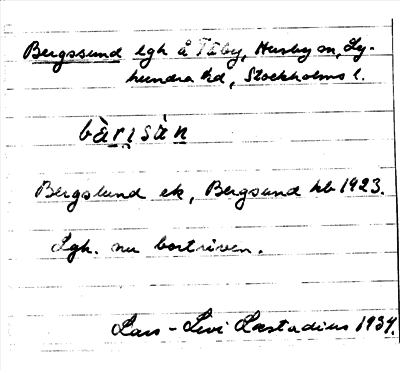 Bergssund lgh å Täby, Husby sn, Ly-
hundra hd, Stockholms l.
bàrısàn
Bergslund ek, Bergsund hb 1923.
Lgh. nu bortriven.
Lars-Levi Læstadius 1934.